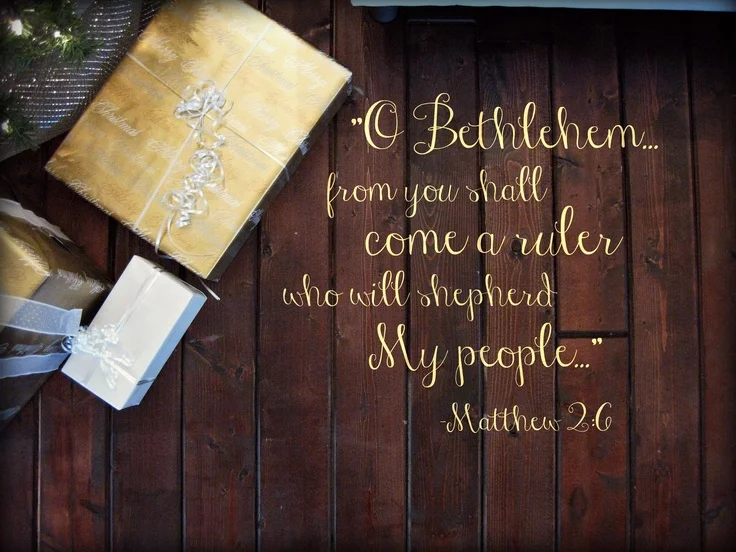 "O Bethlehem...
from you shall
come a ruler
who will shepherd
My people..."
-Matthew 2:6